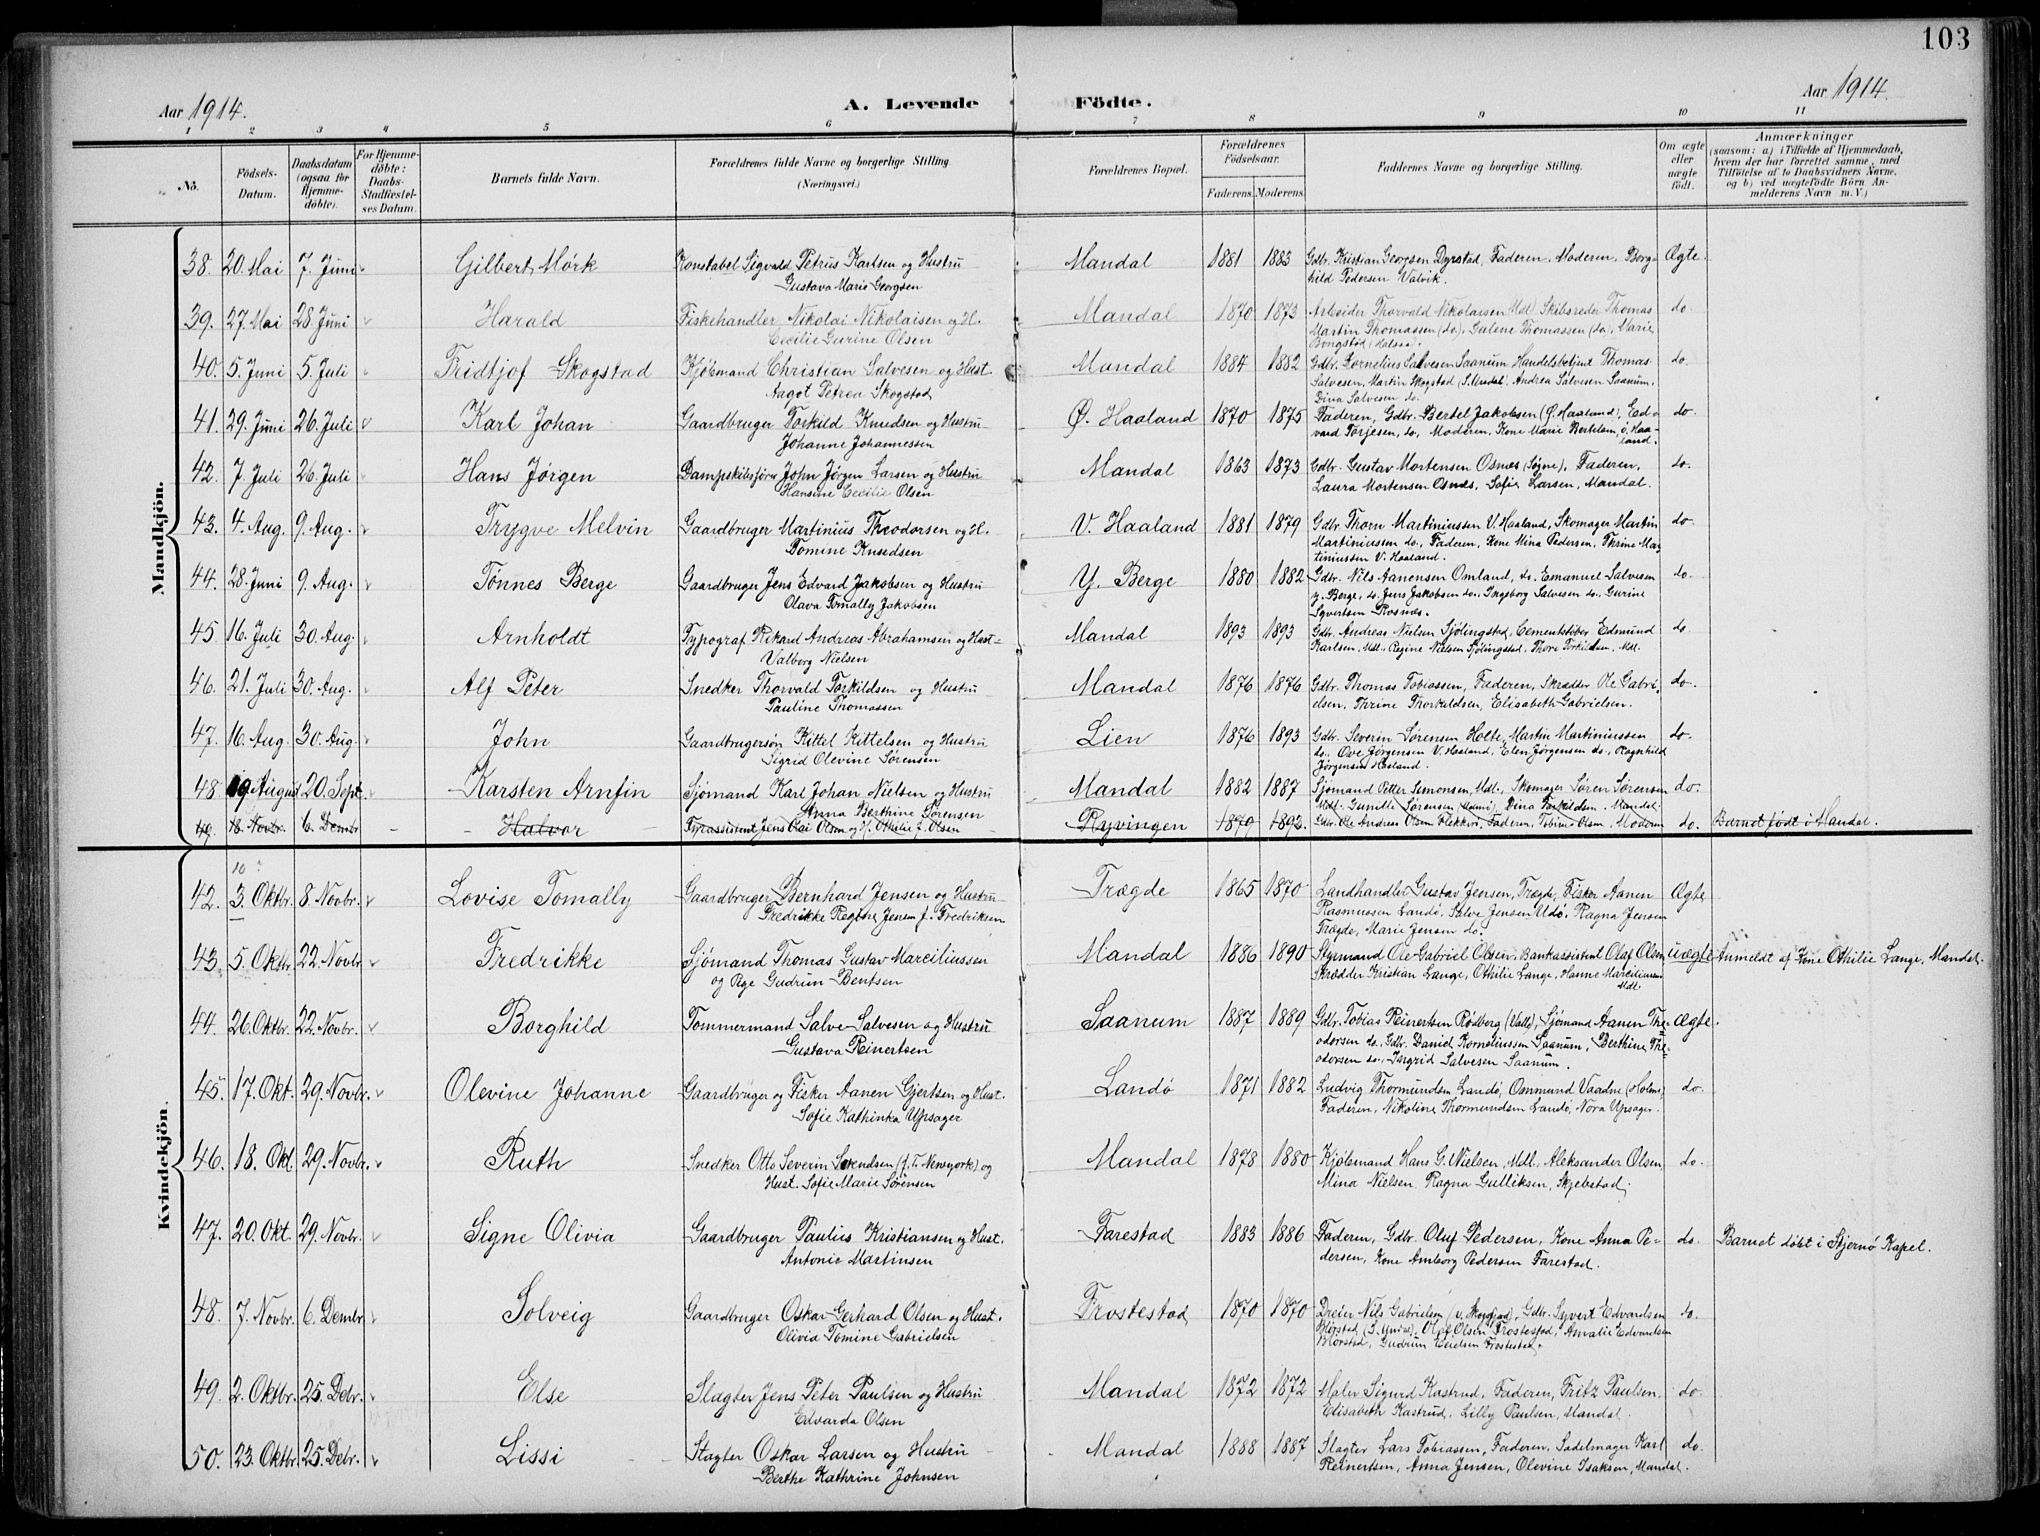 103
Aar 1914. A. Levende Födte. Aar 1914.
1 2 3 4 5 6 7 8 9 10 11
No. Födsels-Datum. Daabsdatum (ogsaa for Hjemmedöbte). For Hjemmedöbte: Daabs-Stadfæstelses Datum. Barnets fulde Navn. Forældrenes fulde Navne og borgerlige Stilling. (Næringsvei.) Forældrenes Bopæl. Forældrenes Födselsaar. Faderens. Moderens. Faddernes Navne og borgerlige Stilling. Om ægte eller uægte födt. Anmærkninger (saasom: a.) i Tilfælde af Hjemmedaab, hvem der har forrettet samme, med Tilföielse af to Daabsvidners Navne, og b) ved uægtefödte Börn Anmelderens Navn m. V.)
Mandkjön.
38. 20. Mai 7. Juni Gilbert Mörk Konstabel Sigvald Petrus Karlsen og Hustru Mandal 1881 1883 Gdbr. Kristian Georgsen Dyrstad, Faderen, Moderen, Borg- Ægte.
Gustava Marie Georgsen hild Pedersen Valvik.
39. 27. Mai 28. Juni Harald Fiskehandler Nikolai Nikolaisen og H. Mandal 1870 1873 Arbeider Thorvald Nikolaisen Mdl. Skibsreder Thomas do.
Cecilie Gurine Olsen Martin Thomassen (do), Gulene Thomassen (do), Marie
40. 5. Juni 5. Juli Fridtjof Skogstad Kjöbmand Christian Salvesen og Hust. Mandal 1884 1882 Gdbr. Kornelius Salvesen Saanum, Handelsbetjent Thomas do.
Aagot Petrea Skogstad Salvesen, Martin Skogstad (S. Undal), Andrea Salvesen Saanum,
Dina Salvesen do.
41. 29. Juni 26. Juli Karl Johan Gaardbruger Torkild Knudsen og Hustru Ø. Haaland 1870 1875 Faderen, Gdbr. Bertel Jakobsen (Ø. Haaland), Ed- do.
Johanne Johannessen vard Torjesen, do, Moderen, Kone Marie Bertelsen, ö. Haa-
land.
42. 7. Juli 26. Juli Hans Jørgen Dampskibsförer John Jørgen Larsen og Hustru Mandal 1863 1873 Gdbr. Gustav Mortensen Osnes (Søgne), Faderen, do.
Hansine Cecilie Olsen Laura Mortensen Osnes, Sofie Larsen, Mandal.
43. 4. Aug. 9. Aug. Trygve Melvin Gaardbruger Martinius Theodorsen og H. V. Haaland 1881 1879 Gdbr. Thorn Martiniussen V. Haaland, Skomager Martin do.
Tomine Knudsen Martiniussen do, Faderen, Kone Mina Pedersen, Thrine Mar-
tiniussen V. Haaland.
44. 28. Juni 9. Aug. Tønnes Berge Gaardbruger Jens Edvard Jakobsen og Hustru Y. Berge 1880 1882 Gdbr. Nils Aanensen Omland, do. Emanuel Salvesen do.
Olava Tomally Jakobsen y. Berge, do. Jens Jakobsen do, Ingeborg Salvesen do. Gurine
Syvertsen Rosnes.
45. 16. Juli 30. Aug. Arnholdt Typograf Rikard Andreas Abrahamsen og Hust- Mandal 1893 1893 Gdbr. Andreas Nielsen Sjölingstad, Cementstöber Edmund do
Valborg Nielsen Karlsen, Mdl. Regine Nielsen Sjölingstad, Thora Torkildsen, Mdl.
46. 21. Juli 30. Aug. Alf Peter Snedker Thorvald Torkildsen og Hustru Mandal 1876 1876 Gdbr. Thomas Tobiassen, Faderen, Skrædder Ole Gabri- do.
Pauline Thomassen elsen, Thrine Thorkildsen, Elisabeth Gabrielsen.
47. 16. Aug. 30. Aug. John Gaardbrugersøn Kittel Kittelsen og Hustru Lien 1876 1893 Gdbr. Severin Sørensen Holte, Martin Martiniussen do.
Sigrid Olevine Sørensen do. Ove Jørgensen V. Haaland, Elen Jørgensen do, Ragnhild
Jørgensen Haaland.
48 19 August 20. Sept. Karsten Arnfin Sjömand Karl Johan Nielsen og Hustru Mandal 1882 1887 Sjömand Petter Simonsen, Mdl., Skomager Søren Sørensen do.
Anna Berthine Sørensen Mdl. Gunille Sørensen (Holme), Dina Torkildsen. Mandal.
49. 18. Novbr. 6. Dembr Halvor Fyrassistent Jens Olai Olsen og H. Othilie J. Olsen Ryvingen 1870 1892. Gdbr. Ole Andreas Olsen Flekkerö, Faderen, Tobine Olsen, Moderen do. Barnet födt i Mandal.
Kvindekjön.
10?
42. 3. Oktbr. 8. Novbr. Lovise Tomally Gaardbruger Bernhard Jensen og Hustru Trægde 1865 1870 Landhandler Gustav Jensen, Trægde, Fisker Aanen Ægte
Fredrikke Regine Jensen f. Fredriksen Rasmussen Landö, Salve Jensen Udö, Ragna Jensen
Trægde, Marie Jensen do.
43. 5. Oktbr 22. Novbr Fredrikke Sjömand Thomas Gustav Marciliussen Mandal 1886 1890 Styrmand Ole Gabriel Olsen, Bankassistent Olaf Olsen uægte Anmeldt af Kone Othilie Lange, Mandal.
og Pge Gudrun Bentsen Skrædder Kristian Lange, Othilie Lange, Hanne Marciliussen
Mdl.
44. 26. Oktbr. 22. Novbr. Borghild Tømmermand Salve Salvesen og Hustru Saanum 1887 1889 Gdbr. Tobias Reinertsen Rödberg (Valle), Sjömand Aanen The- Ægte.
Gustava Reinertsen odorsen do., Gdbr. Daniel Korneliussen Saanum, Berthine The-
odorsen do., Ingrid Salvesen Saanum.
45. 17. Okt. 29. Novbr. Olevine Johanne Gaardbruger og Fisker Aanen Gjertsen og Hust. Landö 1871 1882 Ludvig Thormundsen Landö, Ommund Vaadne (Holme) do.
Sofie Kathinka Upsager Faderen, Nikoline Thormundsen Landö, Nora Upsager.
46. 18. Okt 29. Novbr. Ruth Snedker Otto Severin Svendsen (f. T. Newyork) og Mandal 1878 1880 Kjöbmand Hans G. Nielsen, Mdl. Aleksander Olsen, do.
Hust. Sofie Marie Sørensen Mina Nielsen. Ragna Gulliksen, Skjebstad.
47. 20. Okt 29. Novbr. Signe Olivia Gaardbruger Paulius Kristiansen og Hust. Farestad 1883 1886 Faderen, Gdbr. Oluf Pedersen, Kone Anna Pe- do. Barnet döbt i Stjernö Kapel.
Antonie Martinsen dersen, Kone Amborg Pedersen Farestad.
48. 7. Novbr. 6. Dembr Solveig Gaardbruger Oskar Gerhard Olsen og Hust. Frostestad 1870 1870 Dreier Nils Gabrielsen (v. Skogstad), Gdbr. Syvert Edvardsen do.
Olivia Tomine Gabrielsen Blörstad (S. Undal), Oluf Olsen Frostestad, Amalie Edvardsen
Blörstad, Gudrun Frostestad.
49. 2. Oktbr. 25. Debr. Else Slagter Jens Peter Paulsen og Hustru Mandal 1872 1872 Maler Sigurd Kastrud, Faderen, Fritz Paulsen, do.
Edvarda Olsen Elisabeth Kastrud. Lilly Paulsen, Mandal.
50. 23. Oktbr 25. Debr. Lissi Slagter Oskar Larsen og Hustru Mandal 1888 1887 Slagter Lars Tobiassen, Faderen, Sadelmager Karl do.
Berthe Kathrine Johnsen Reinertsen, Anna Jensen, Olevine Isaksen, Mandal.